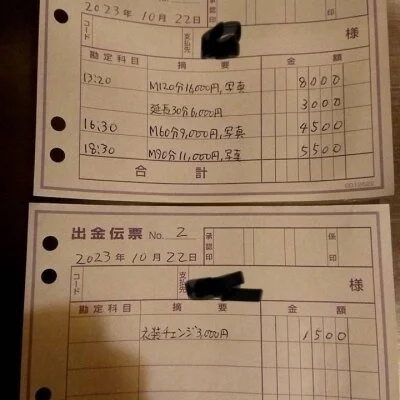 2023年10月22日
承認印
係印
コード
支払先
様
勘定科目 摘要 金額
13:20 M120分16,000円,写真 8000
延長30分6,000円 3000
16:30 M60分9,000円,写真 4500
18:30 M90分11,000円,写真 5500
合計
出金伝票 No. 2
承認印
係印
2023年10月22日
コード
支払先
様
勘定科目 摘要 金額
衣装チェンジ3,000円 1500